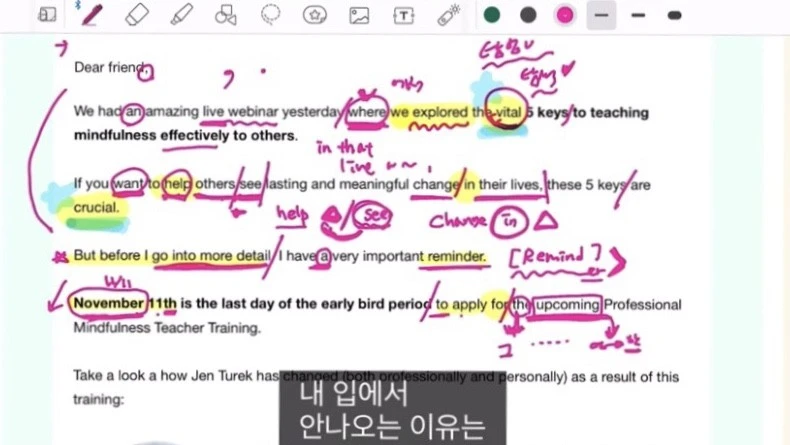 Dear friend,
We had an amazing live webinar yesterday where we explored the vital 5 keys to teaching
mindfulness effectively to others.
in that
live
If you want to help others see lasting and meaningful change in their lives, these 5 keys are
crucial.
help see change in
But before I go into more detail I have a very important reminder. [Remind]
will
November 11th is the last day of the early bird period to apply for the upcoming Professional
Mindfulness Teacher Training.
그 .....
Take a look a how Jen Turek has changed (both professionally and personally) as a result of this
training:
내 입에서
안나오는 이유는